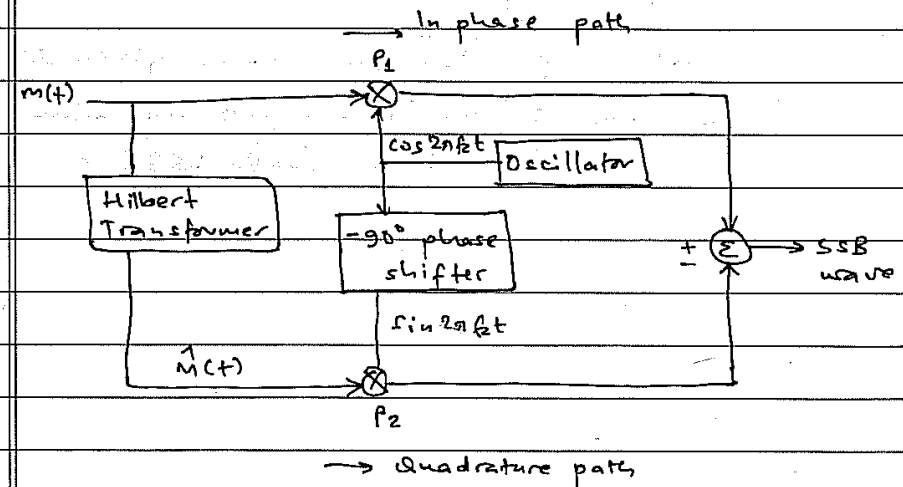 → In phase path
P1
m(t)
cos 2πfct
Oscillator
Hilbert
Transformer
-90° phase
shifter
±
Σ
→ SSB
wave
sin 2πfct
m̂(t)
P2
→ Quadrature path